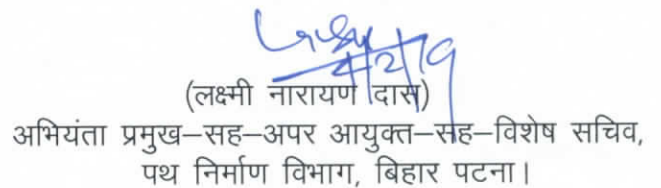 4/2/19
(लक्ष्मी नारायण दास)
अभियंता प्रमुख–सह–अपर आयुक्त–सह–विशेष सचिव,
पथ निर्माण विभाग, बिहार पटना।